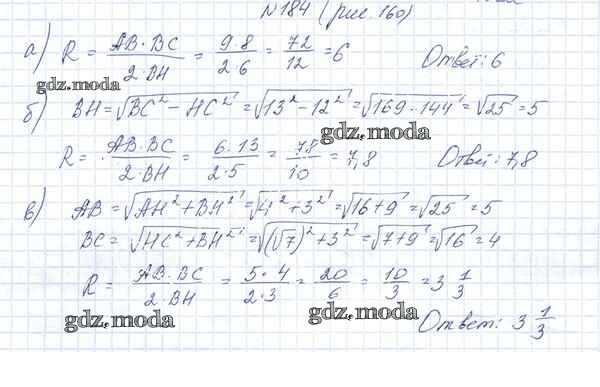 №184 (рис. 160)
а) R = AB·BC / 2·BH = 9·8 / 2·6 = 72 / 12 = 6 Ответ: 6
gdz.moda
б) BH = √BC² − HC² = √13² − 12² = √169 · 144 = √25 = 5
gdz.moda
R = · AB·BC / 2·BH = 6·13 / 2·5 = 78 / 10 = 7,8 Ответ: 7,8
в) AB = √AH² + BH² = √4² + 3² = √16 + 9 = √25 = 5
BC = √HC² + BH² = √(√7)² + 3² = √7 + 9 = √16 = 4
R = AB·BC / 2·BH = 5·4 / 2·3 = 20 / 6 = 10 / 3 = 3 1/3
gdz.moda gdz.moda
Ответ: 3 1/3